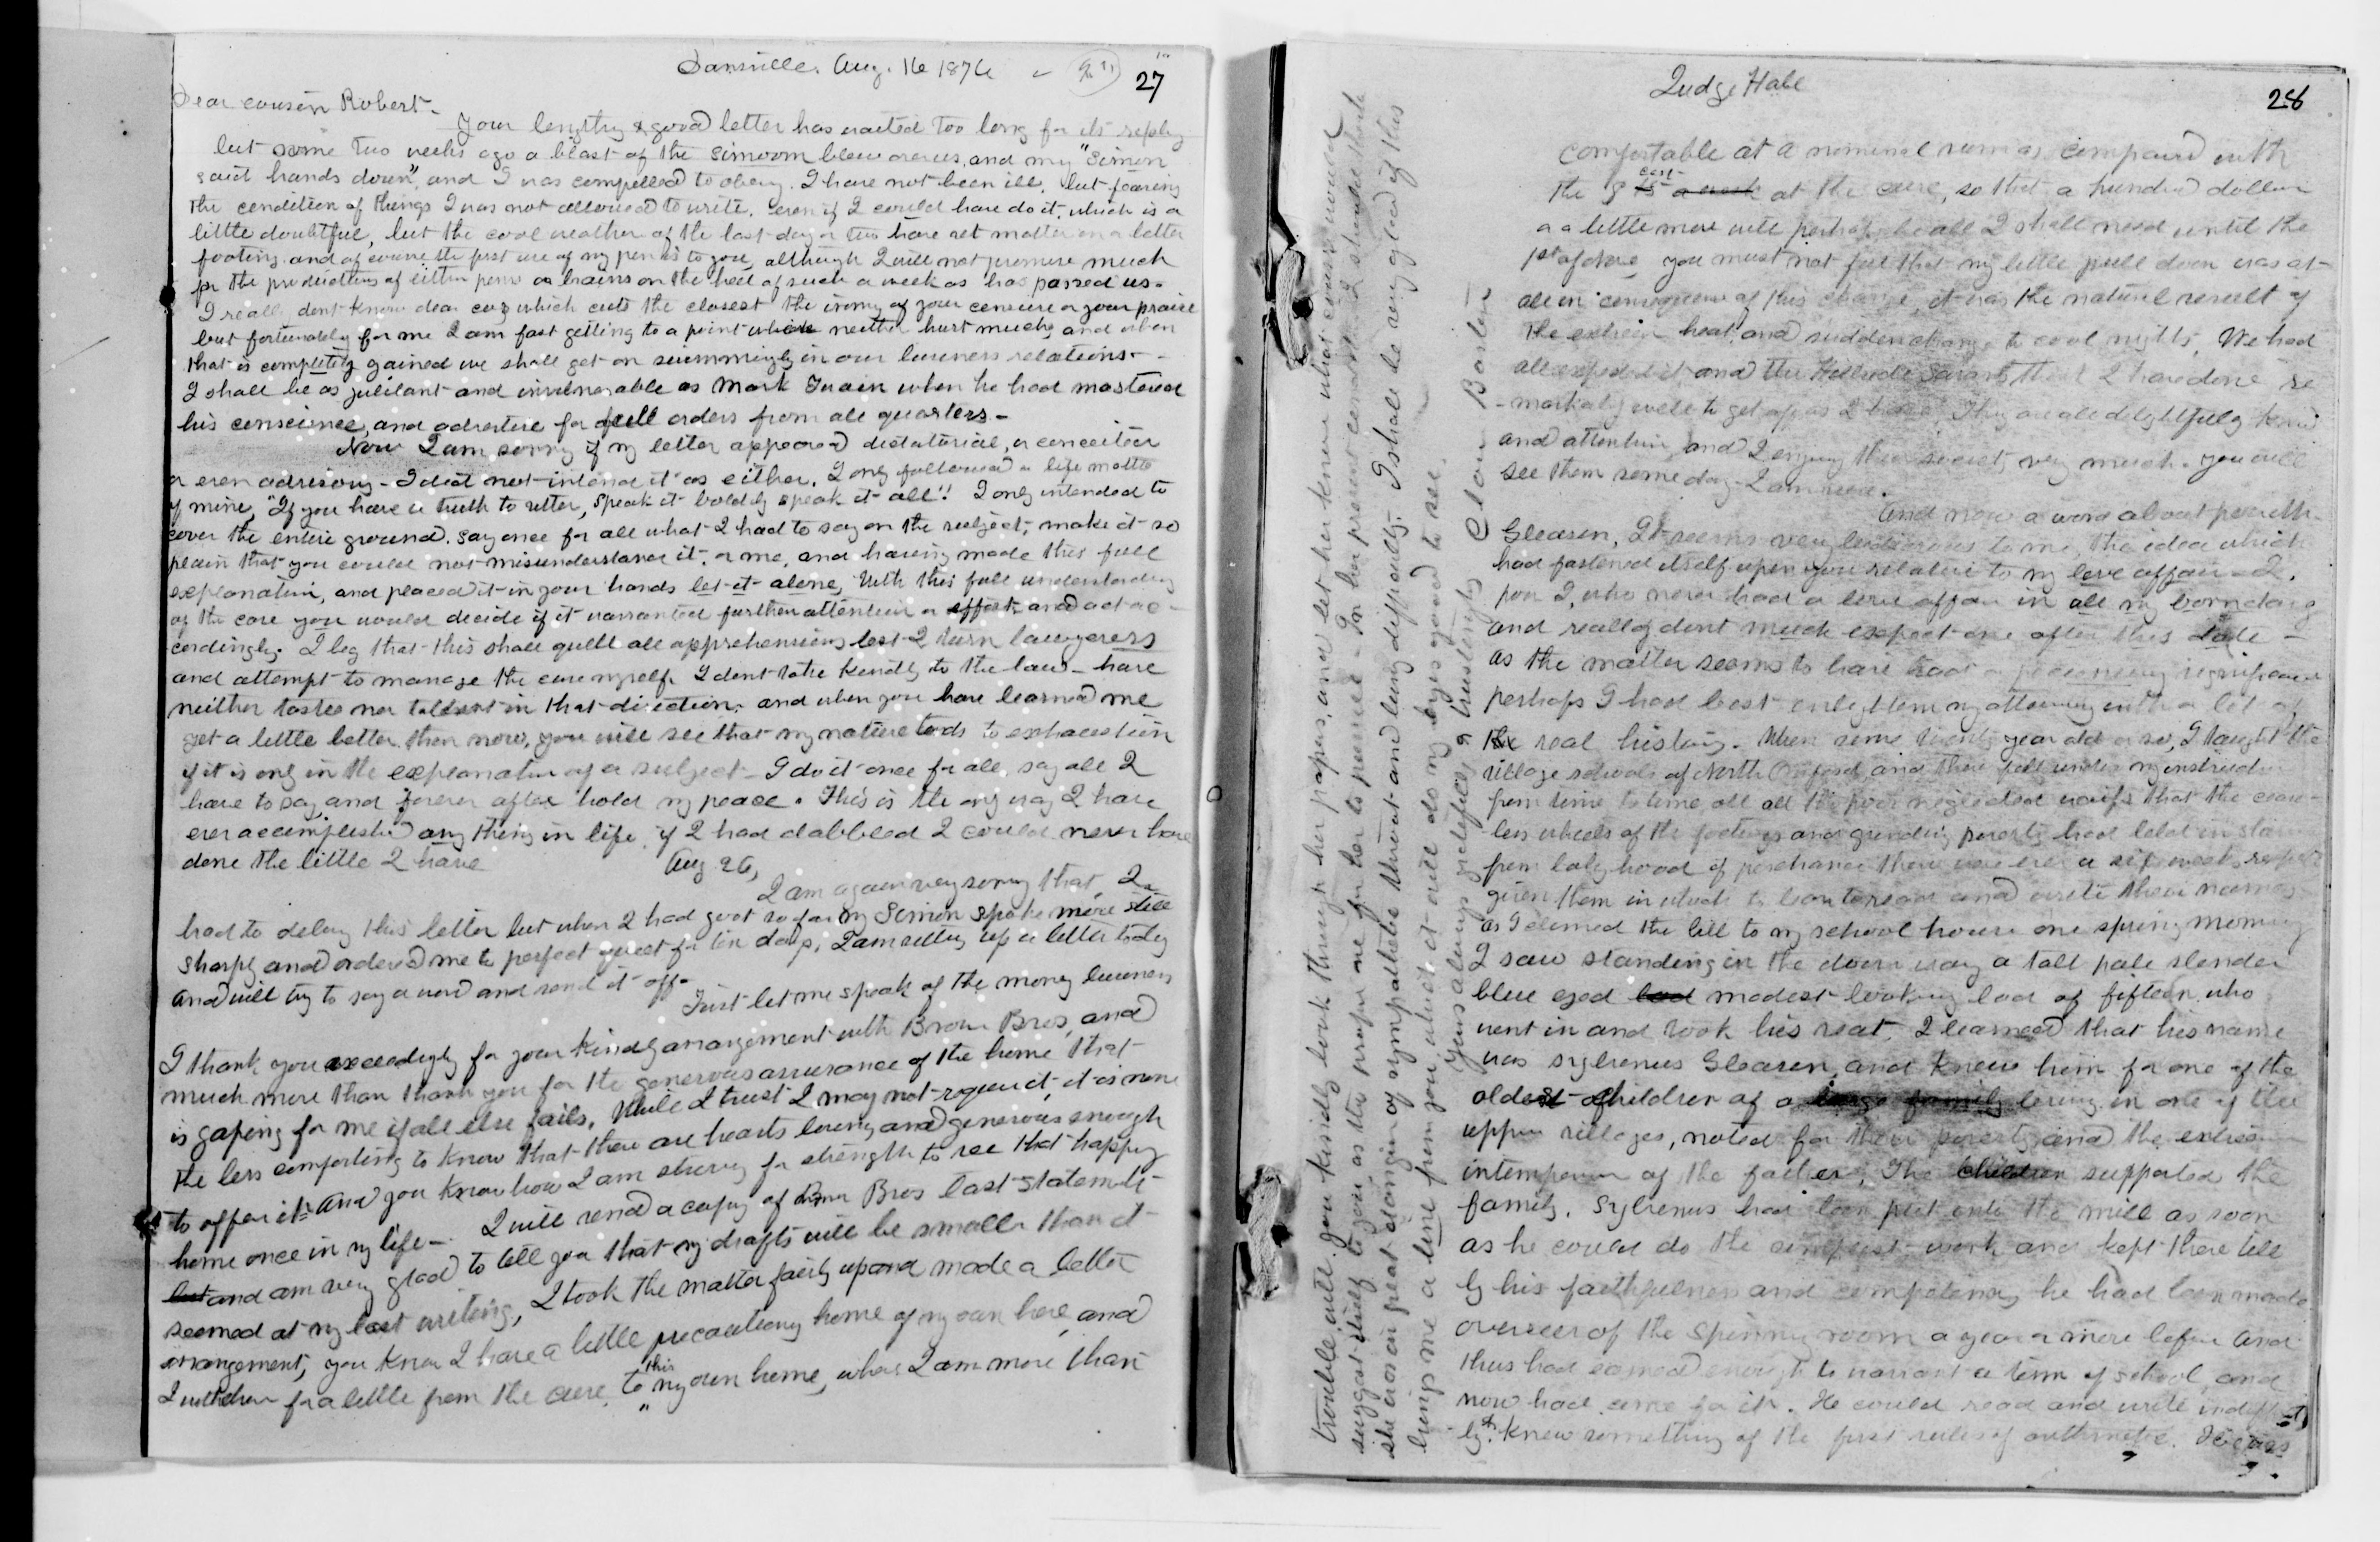 Dansville. Aug. 16 1876
27
Dear cousin Robert -
Your lengthy & good letter has waited too long for its reply
but some two weeks ago a blast of the simoom blew over us, and my "Simon
said hands down", and I was compelled to obey. I have not been ill, but fearing
the condition of things I was not allowed to write, even if I could have do it, which is a
little doubtful, but the cool weather of the last day or two have set matter on a better
footing, and of course the first use of my pen is to you, although I will not promise much
for the productions of either pens or brains on the heel of such a week as has passed us.
I really dont know dear coz which cuts the closest the irony of your censure or your praise
but fortunately for me I am fast getting to a point where neither hurt much, and when
that is completely gained we shall get on swimmingly in our business relations -
I shall be as jubilant and invulnerable as Mark Twain when he had mastered
his conscience, and advertise for full orders from all quarters -
Now I am sorry if my letter appeared dictatorial, or conceited
or even advisory - I did not intend it as either. I only followed a life motto
of mine, "If you have a truth to utter, speak it boldly speak it all"! I only intended to
cover the entire ground, say once for all what I had to say on the subject, make it so
plain that you could not misunderstand it, or me, and having made this full
explanation, and placed it in your hands let it alone, With this full understanding
of the case you would decide if it warranted further attention or effort, and act ac-
cordingly. I beg that this shall quell all apprehensions lest I turn lawyeress
and attempt to manage the case myself. I dont take kindly to the law - have
neither tastes nor talent in that direction, and when you have learned me
get a little better than now, you will see that my nature tends to exhaustion
if it is only in the explanation of a subject - I do it once for all, say all I
have to say, and forever after hold my peace. This is the only way I have
ever accomplished any thing in life, if I had dabbled I could never have
done the little I have
Aug 26,
I am again very sorry that I
had to delay this letter but when I had got so far my Simon spoke more still
sharply and ordered me to perfect quiet for ten days, I am setting up a little today
and will try to say a word and send it off -
Just let me speak of the money business
I thank you exceedingly for your kindly arrangement with Brown Bros, and
much more than thank you for the generous assurance of the home that
is gaping for me if all else fails, While I trust I may not require it, it is none
the less comforting to know that there are hearts loving and generous enough
to offer it - And you know how I am striving for strength to see that happy
home once in my life - I will send a copy of Brown Bros last statement
but and am very glad to tell you that my drafts will be smaller than it
seemed at my last writing, I took the matter fairly up and made a better
arrangement, you know I have a little precautionary home of my own here, and
I withdrew for a little from the cure, to this my own home, where I am more than
Judge Hale
28
comfortable at a nominal sum as compared with
the cost at the cure, so that a hundred dollars
or a little more will perhaps be all I shall need until the
1st of you must not feel that my little pull down was at
all in consequence of this change, it was the natural result of
the extreme heat, and sudden change to cool nights, We had
all expected it and the Hillside savants think I have done re
-markably well to get off as I have. They are all delightfully kind
and attentive, and I enjoy their society very much. you will
see them some day - I am sure.
And now a word about
Gleason, It seems very ludicrous to me, the idea which
had fastened itself upon you relative to my love affair - I,
poor I, who never had a love affair in all my born days
and really dont much expect one after this date -
as the matter seems to have had a pecuniary significance
perhaps I had best enlighten my attorney with a bit of
the real history - When some twenty year old or so, I taught the
village schools of North Oxford and there fell under my instruction
from time to time all all the poor neglected waifs that the cease-
less wheels of the factory and grinding poverty had held in
from babyhood if perchance there were ever a six weeks respite
given them in which to learn to read and write their names
as I climed the hill to my school house one spring morning
I saw standing in the door way a tall pale slender
blue eyed lad modest looking lad of fifteen, who
went in and took his seat, I learned that his name
was Sylvenus Gleason, and knew him for one of the
oldest children of a large family living in one of the
upper villages, noted for their poverty, and the extreme
intemperance of the father, The children supported the
family, Sylvenus had been put into the mill as soon
as he could do the simplest work and kept there till
by his faithfulness and competency he had been made
overseer of the spinning room a year or more before and
thus had earned enough to warrant a term of school, and
now had come for it. He could read and write
knew something of the first rules of arithmetic. He was
trouble will you kindly look through her papers, and let her know what course would
suggest itself to you as the proper one for her to pursue - In her present I should think
she was in great danger of sympathetic throat and lung difficulty. I shall be very glad if this
brings me a line from you, which it will do my eyes good to see,
Yours always gratefully & trustingly Clara Barton